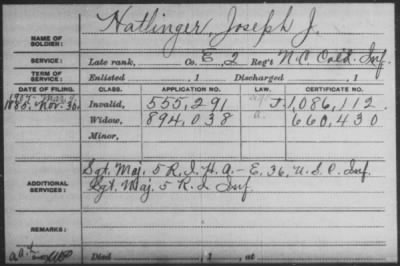 Hatlinger, Joseph J.
NAME OF SOLDIER:
SERVICE: Late rank, Co. E, 2 Reg't N.C. Cold. Inf.
TERM OF SERVICE: Enlisted , 1 Discharged , 1
DATE OF FILING. CLASS. APPLICATION NO. LAW. CERTIFICATE NO.
Nov. 30. Invalid, 555,291 J. 1,086,112
Widow, 894,038 a. 660,430
Minor,
ADDITIONAL SERVICES: Sgt. Maj. 5 R.I.H.A. — E. 36, U.S.C. Inf.
Sgt. Maj. 5 R.I. Inf.
REMARKS:
Died , 1 , at